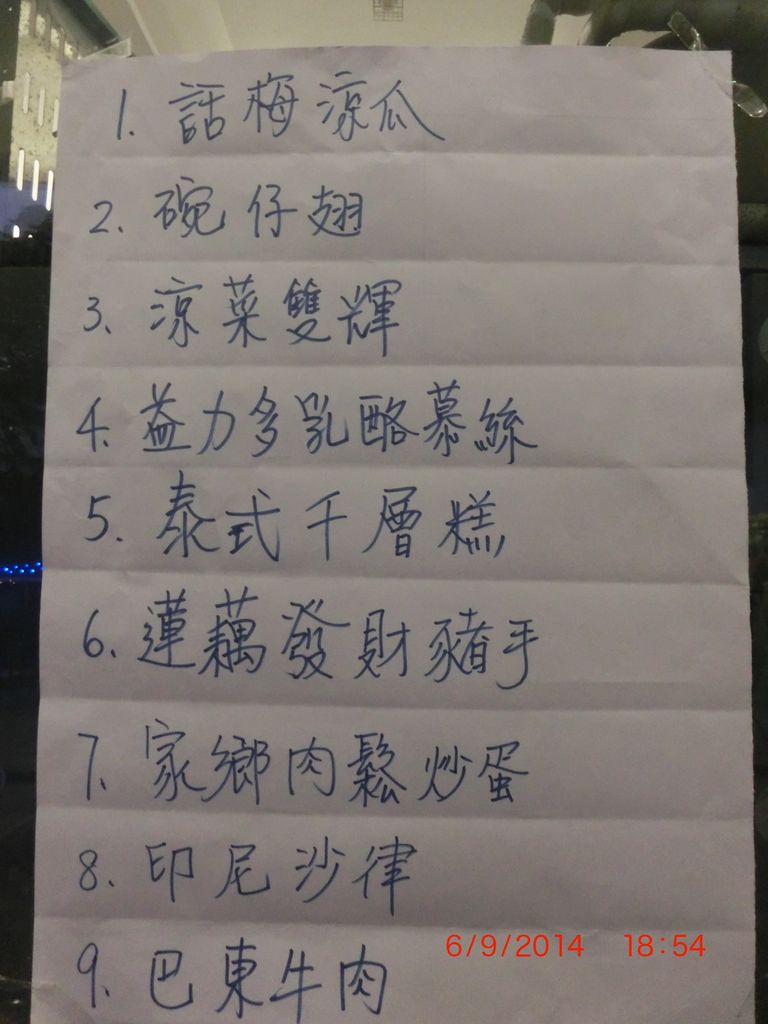 1. 話梅涼瓜
2. 碗仔翅
3. 涼菜雙輝
4. 益力多乳酪慕絲
5. 泰式千層糕
6. 蓮藕發財豬手
7. 家鄉肉鬆炒蛋
8. 印尼沙律
9. 巴東牛肉
6/9/2014 18:54